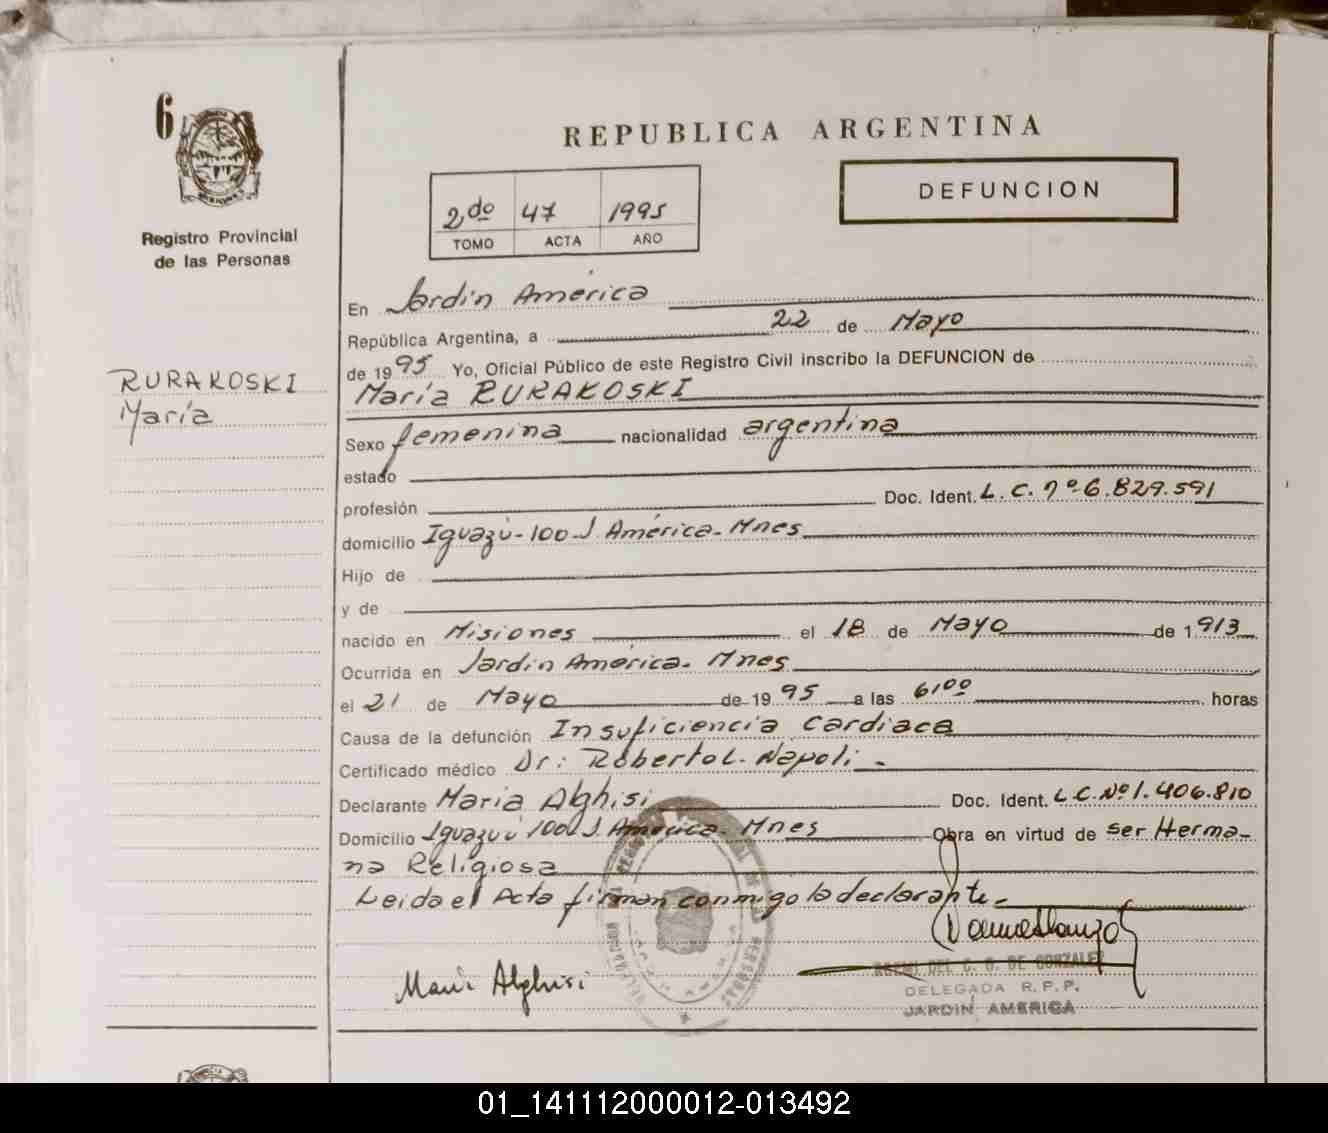 6
Registro Provincial
de las Personas
RURAKOSKI
María
REPUBLICA ARGENTINA
2do 47 1995
TOMO ACTA AÑO
DEFUNCION
En Jardín América
República Argentina, a 22 de Mayo
de 1995 Yo, Oficial Público de este Registro Civil inscribo la DEFUNCION de
María RURAKOSKI
Sexo femenina nacionalidad argentina
estado
profesión Doc. Ident. L.C. nº 6.829.591
domicilio Iguazú-100-J. América-Mnes
Hijo de
y de
nacido en Misiones el 18 de Mayo de 1913
Ocurrida en Jardín América. Mnes
el 21 de Mayo de 1995 a las 6,00 horas
Causa de la defunción Insuficiencia cardiaca
Certificado médico Dr: Roberto L. Napoli -
Declarante Maria Alghisi Doc. Ident. L.C. Nº 1.406.810
Domicilio Iguazú 100 J. América. Mnes Obra en virtud de ser Herma-
na Religiosa
Leida el Acta firman conmigo la declarante.
Maria Alghisi
DEL C. G. DE GONZALEZ
DELEGADA R.P.P.
JARDIN AMERICA
01_141112000012-013492